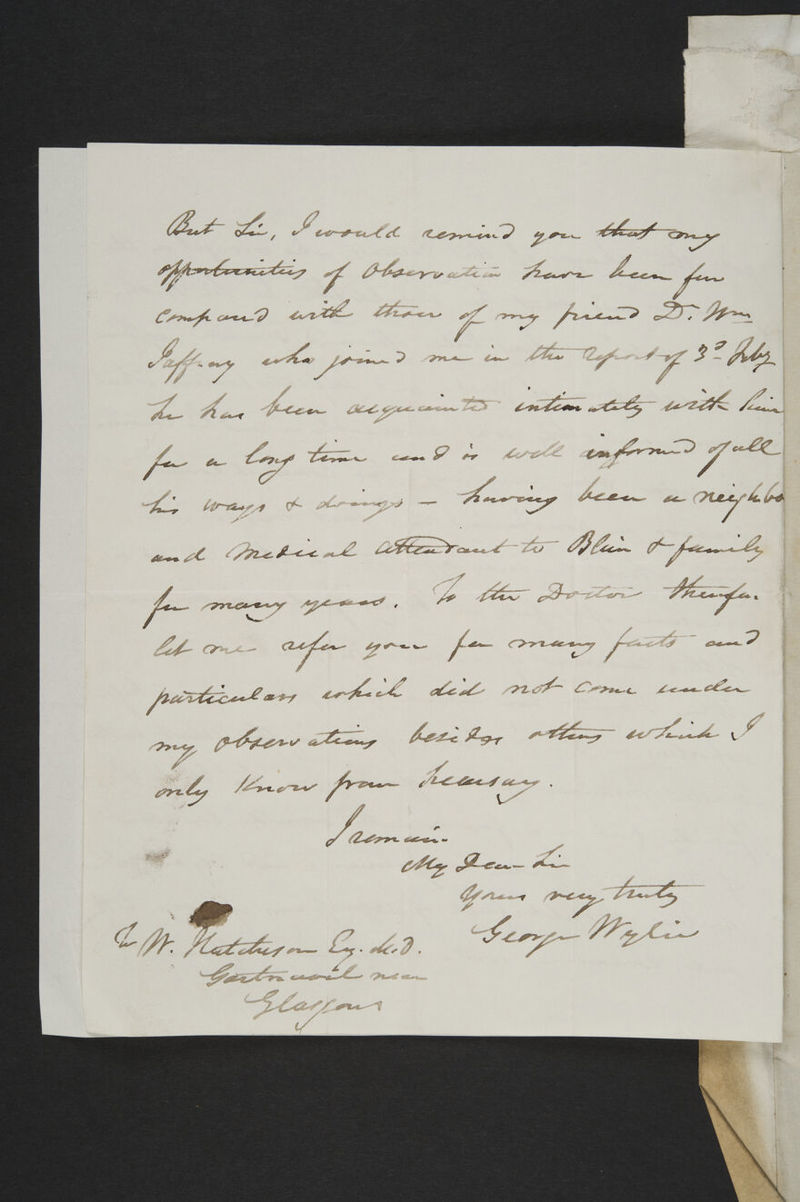 But Sir, I would remind you that my
opportunities of Observation have been few
compared with those of my friend Dr. Wm
Jaffray who joined me in the report of 3d Feby
he has been acquainted intimately with him
for a long time and is well informed of all
his ways & doings – having been a neighbo
and Medical attendant to Blair & family
for many years. To the Doctor therefor
let me refer you for many facts and
particulars which did not come under
my observations besides others which I
only know from hearsay.
I remain
My Dear Sir
Yours very truly
George Wylie
To W. Hutcheson Esq. M.D.
Gartnavel near
Glasgow